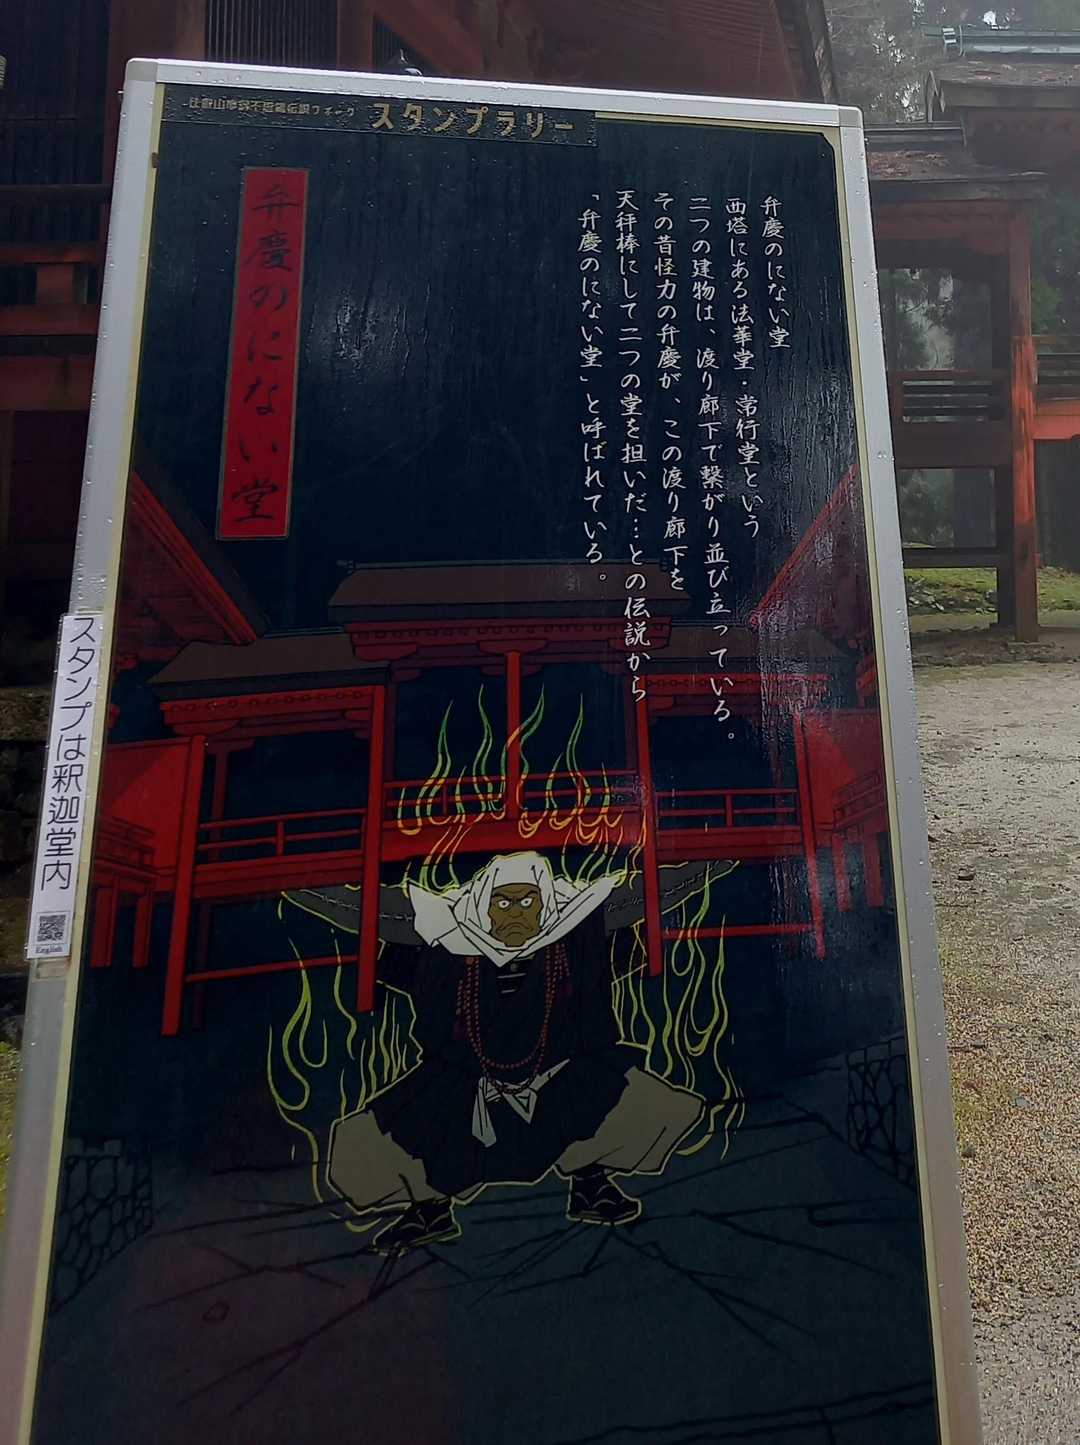 比叡山摩訶不思議伝説クイーク スタンプラリー
弁慶のにない堂
弁慶のにない堂
西塔にある法華堂・常行堂という
二つの建物は、渡り廊下で繋がり並び立っている。
その昔怪力の弁慶が、この渡り廊下を
天秤棒にして二つの堂を担いだ…との伝説から
「弁慶のにない堂」と呼ばれている。
スタンプは釈迦堂内
English